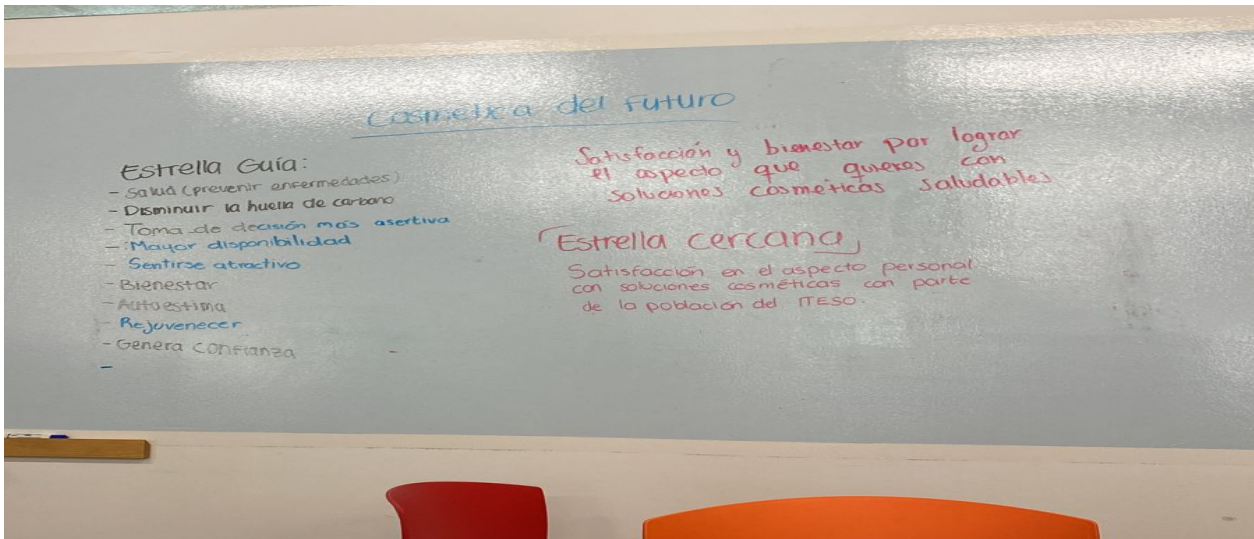 Cosmetica del Futuro
Estrella Guía:
- Salud (prevenir enfermedades)
- Disminuir la huella de carbono
- Toma de decisión más asertiva
- Mayor disponibilidad
- Sentirse atractivo
- Bienestar
- Autoestima
- Rejuvenecer
- Genera confianza
-
Satisfacción y bienestar por lograr
el aspecto que quieres con
soluciones cosméticas saludables
Estrella cercana
Satisfacción en el aspecto personal
con soluciones cosméticas con parte
de la población del ITESO.